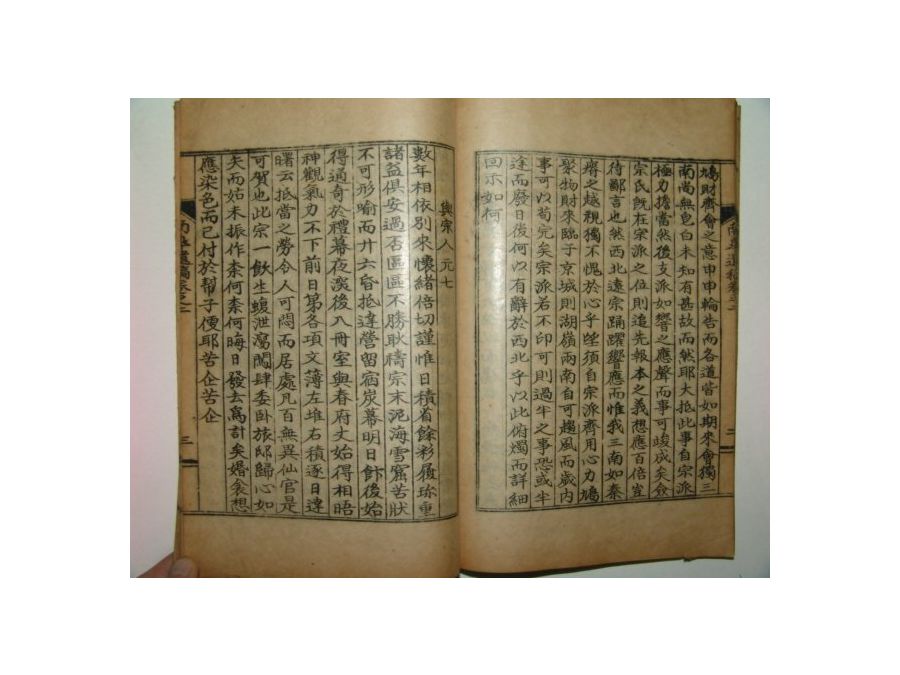 鳩財齊會之意申申輪告而各道皆如期來會獨三
南尚無皂白未知有甚故而然耶大抵此事自宗派
極力擔當然後支派如響之應聲而事可竣成矣僉
宗氏旣在宗派之位則追先報本之義想應百倍豈
待鄙言也然西北遠宗踊躍響應而惟我三南如秦
瘠之越視獨不愧於心乎望須自宗派齊用心力鳩
聚物財來臨于京城則湖嶺兩南自可趨風而歲内
事可以苟完矣宗派若不印可則過半之事恐或半
途而廢日後何以有辭於西北乎以此俯燭而詳細
回示如何
與宗人元七
數年相依別來懷緒倍切謹惟日積省餘彩履珍重
諸益俱安過否區區不勝耿禱宗末泥海雪窟苦狀
不可形喻而廿六昏抵達營留宿炭幕明日飾後始
得通奇於禮幕夜深後入冊室與春府丈始得相晤
神觀氣力不下前日第各項文簿左堆右積逐日達
曙云抵當之勞令人可悶而居處凡百無異仙官是
可賀也此宗一歃生蝮泄瀉關肆委卧旅邸歸心如
矢而始末振作柰何柰何晦日發去爲計矣婚衾想
應染色而已付於幫子便耶苦企苦企
遺稿卷之二
二
遺稿卷之二
三